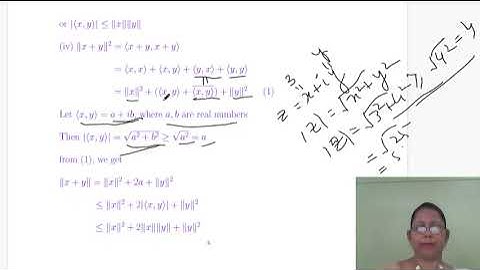 or |⟨x, y⟩| ≤ ‖x‖‖y‖
(iv) ‖x + y‖² = ⟨x + y, x + y⟩
= ⟨x, x⟩ + ⟨x, y⟩ + ⟨y, x⟩ + ⟨y, y⟩
= ‖x‖² + (⟨x, y⟩ + ⟨x, y⟩) + ‖y‖² (1)
Let ⟨x, y⟩ = a + ib, where a, b are real numbers
Then |⟨x, y⟩| = √a² + b² ≥ √a² = a
from (1), we get
‖x + y‖ = ‖x‖² + 2a + ‖y‖²
≤ ‖x‖² + 2|⟨x, y⟩| + ‖y‖²
≤ ‖x‖² + 2‖x‖‖y‖ + ‖y‖²
3 y
z = x + iy
|z| = √x² + y²
|z| = √3² + 4² ≥ √4² = 4
= √25
= 5